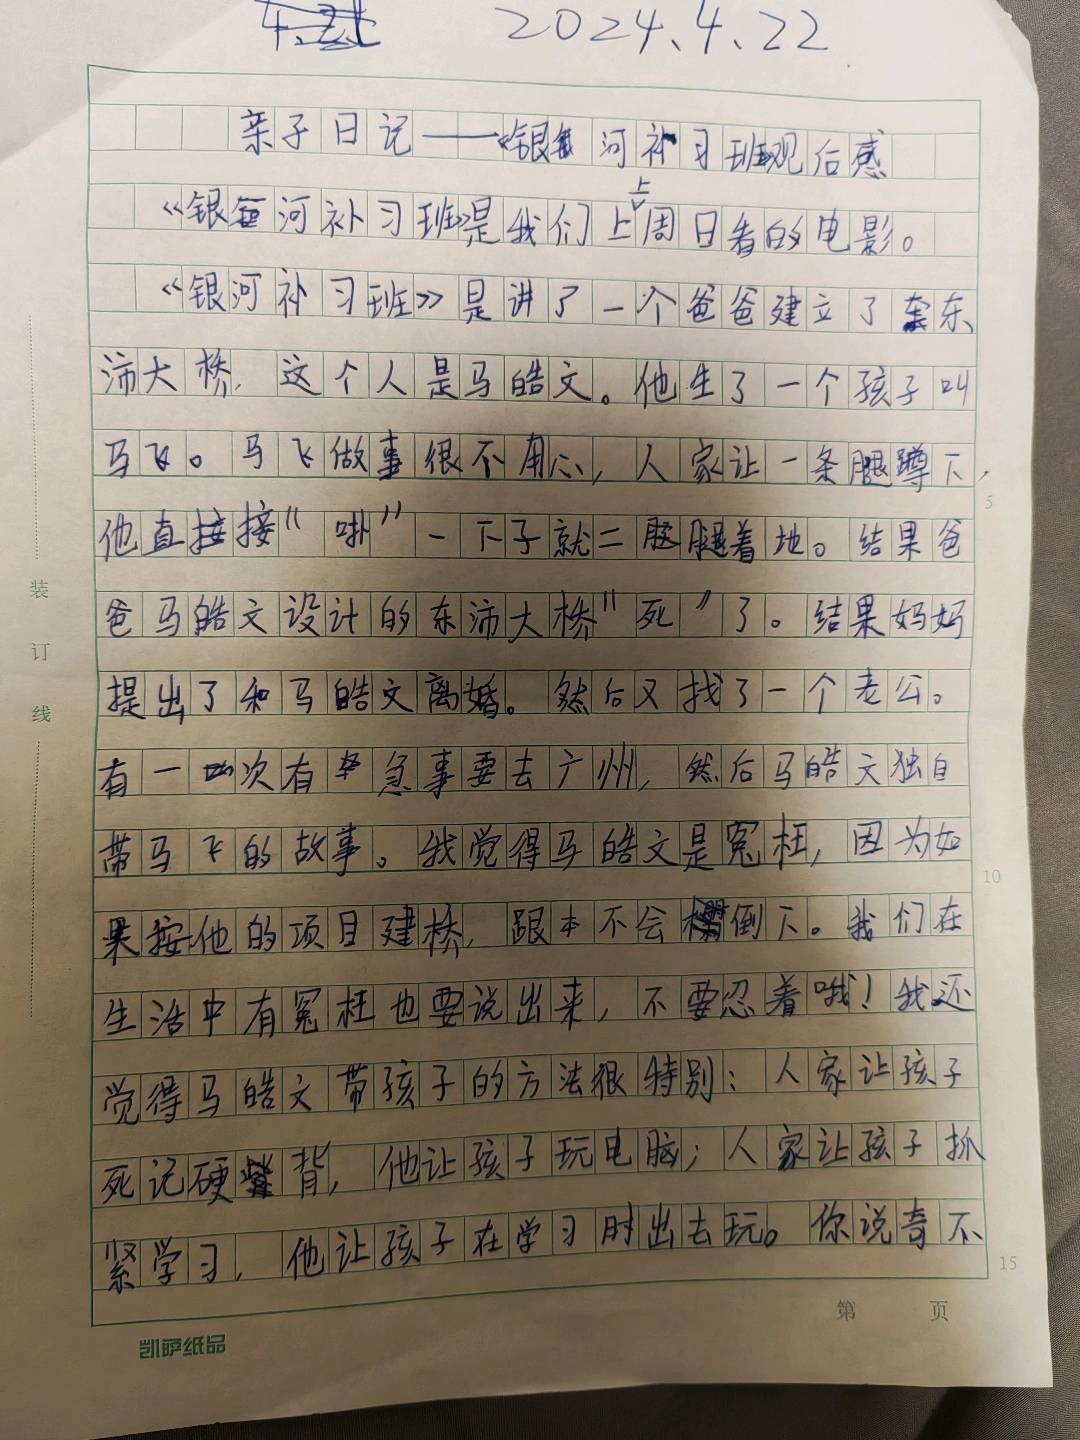 2024.4.22
亲子日记——《银河补习班》观后感
《银河补习班》是我们上上周日看的电影。
《银河补习班》是讲了一个爸爸建立了东
沛大桥,这个人是马皓文。他生了一个孩子叫
马飞。马飞做事很不用心,人家让一条腿蹲下,
他直接接“啪”一下子就二腿着地。结果爸
爸马皓文设计的东沛大桥“死”了。结果妈妈
提出了和马皓文离婚。然后又找了一个老公。
有一次有急事要去广州,然后马皓文独自
带马飞的故事。我觉得马皓文是冤枉,因为如
果按他的项目建桥,跟本不会倒下。我们在
生活中有冤枉也要说出来,不要忍着哦!我还
觉得马皓文带孩子的方法很特别:人家让孩子
死记硬背,他让孩子玩电脑;人家让孩子抓
紧学习,他让孩子在学习时出去玩。你说奇不
装
订
线
5
10
15
第 页
凯萨纸品